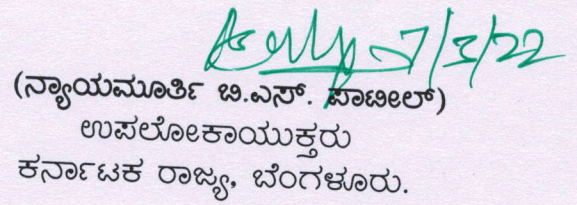 7/3/22
(ನ್ಯಾಯಮೂರ್ತಿ ಬಿ.ಎಸ್. ಪಾಟೀಲ್)
ಉಪಲೋಕಾಯುಕ್ತರು
ಕರ್ನಾಟಕ ರಾಜ್ಯ, ಬೆಂಗಳೂರು.